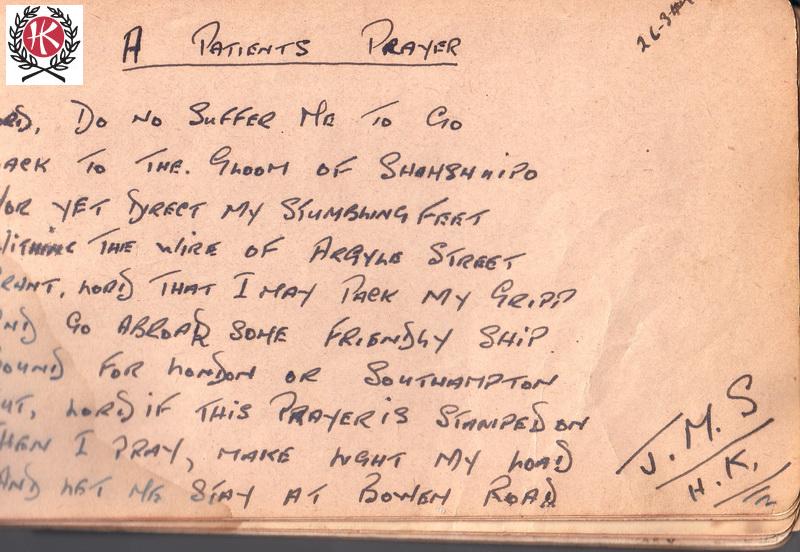 HK
26-3-44
A PATIENTS PRAYER
ORD, DO NO SUFFER ME TO GO
ACK TO THE. GLOOM OF SHAMSHUIPO
OR YET DIRECT MY STUMBLING FEET
WITHINE THE WIRE OF ARGYLE STREET
RANT, LORD THAT I MAY PACK MY GRIPP
AND GO ABROAD SOME FRIENDLY SHIP
OUND FOR LONDON OR SOUTHAMPTON
UT, LORD IF THIS PRAYER IS STAMPED ON
THEN I PRAY, MAKE LIGHT MY LOAD
AND LET ME STAY AT BOWEN ROAD
J.M.S
H.K.